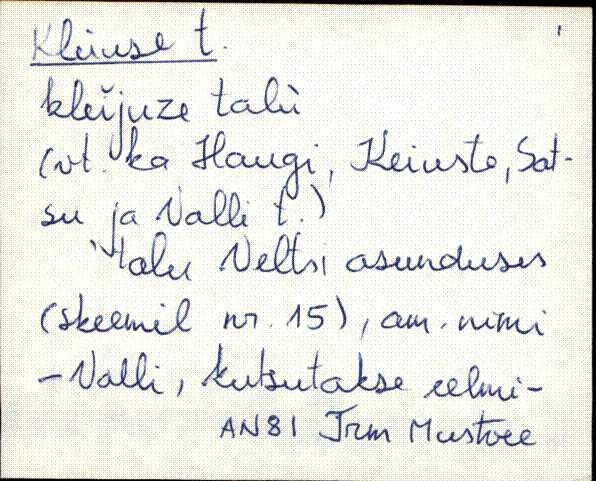 Kleiuse t.
kleĭjuze talù
(vt. ka Haugi, Keiuste, Sat-
su ja Valli t.)
talu Veltsi asunduses
(skeemil nr. 15), am. nimi
- Valli, kutsutakse eelmi-
AN81 Jrm Mustvee